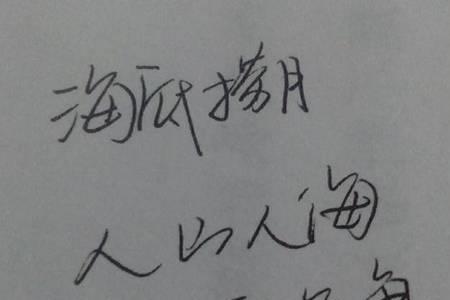 海底捞月
人山人海